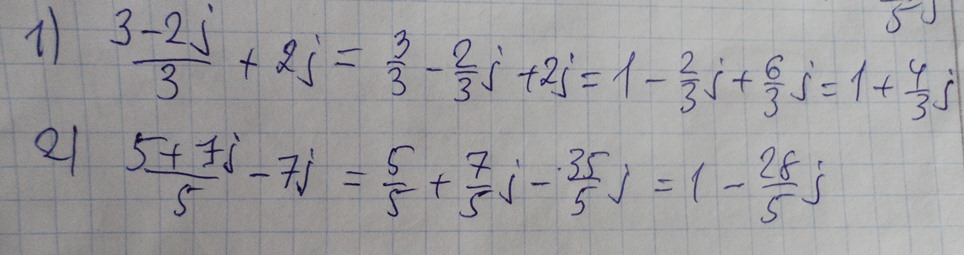 5 j
1) (3-2j)/3 + 2j = 3/3 - 2/3 j + 2j = 1 - 2/3 j + 6/3 j = 1 + 4/3 j
2) (5+7j)/5 - 7j = 5/5 + 7/5 j - 35/5 j = 1 - 28/5 j